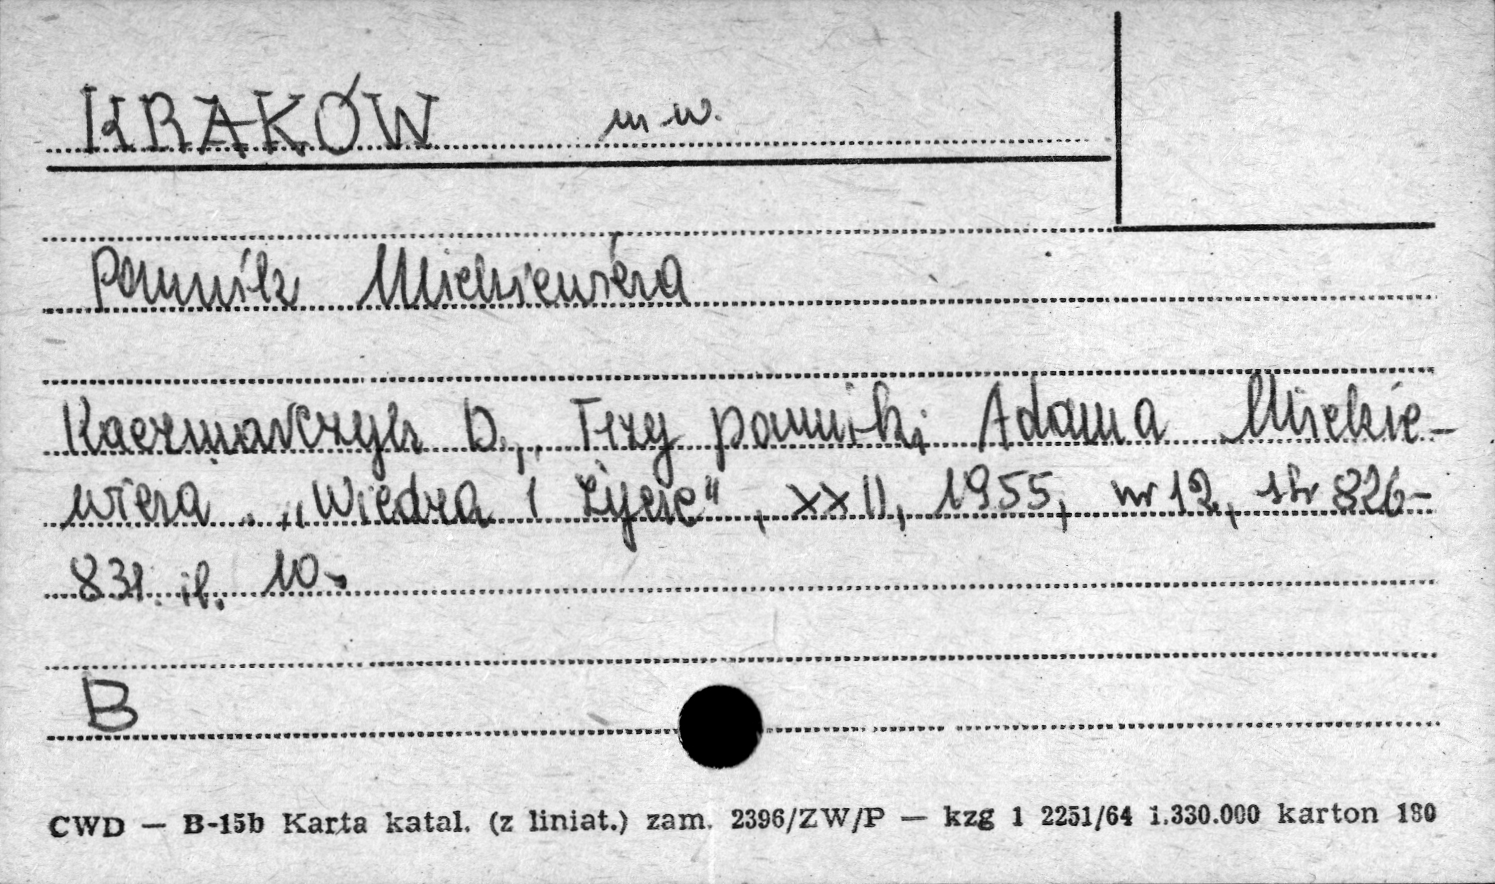 KRAKÓW m w.
Pomnik Mickiewicza
Kaczmarczyk D., Trzy pomniki Adama Mickie-
wicza. „Wiedza i Życie", XXII, 1955, nr 12, str 826-
831. il. 10.
B
CWD — B-15b Karta katal. (z liniat.) zam. 2396/ZW/P — kzg 1 2251/64 1.330.000 karton 180